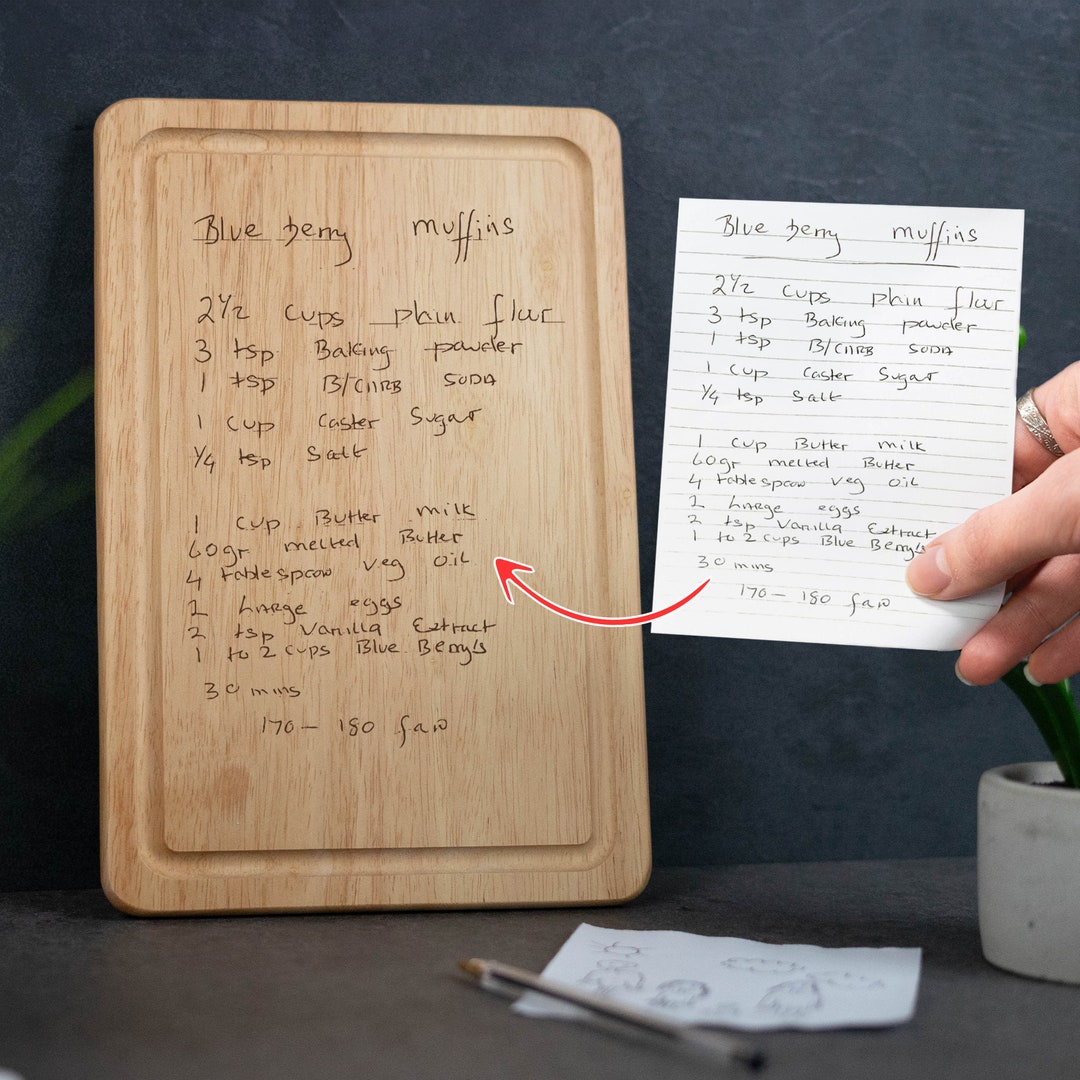 Blue berry muffins
2½ cups plain flour
3 tsp Baking powder
1 tsp B/CARB SODA
1 cup Caster Sugar
¼ tsp Salt
1 cup Butter milk
60gr melted Butter
4 tablespoon veg oil
2 Large eggs
2 tsp Vanilla Extract
1 to 2 cups Blue Berry's
30 mins
170 - 180 fan
Blue berry muffins
2½ cups plain flour
3 tsp Baking powder
1 tsp B/CARB SODA
1 cup Caster Sugar
¼ tsp Salt
1 cup Butter milk
60gr melted Butter
4 tablespoon veg oil
2 Large eggs
2 tsp Vanilla Extract
1 to 2 cups Blue Berry's
30 mins
170 - 180 fan